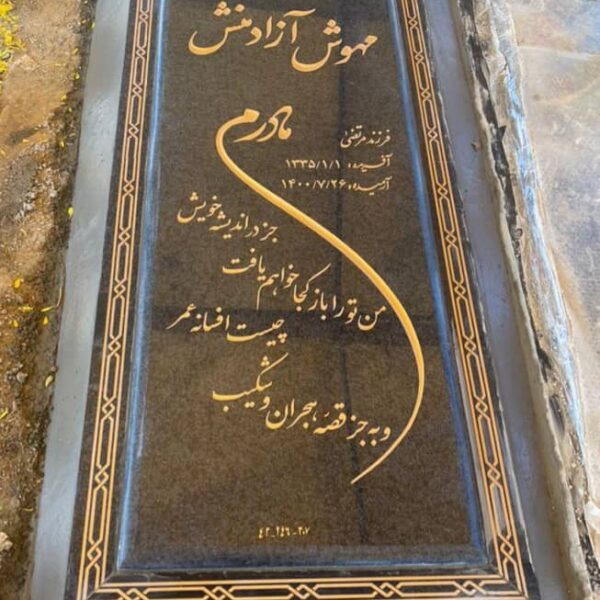 مهوش آزادمنش
مادرم
فرزند مرتضی
آفریده: ۱۳۳۵/۱/۱
آرمیده: ۱۴۰۰/۷/۲۶
جز در اندیشه خویش
من تو را باز کجا خواهم یافت
چیست افسانه عمر
و به جز قصه هجران و شکیب
۴۲-۲۴۶-۲۰۷